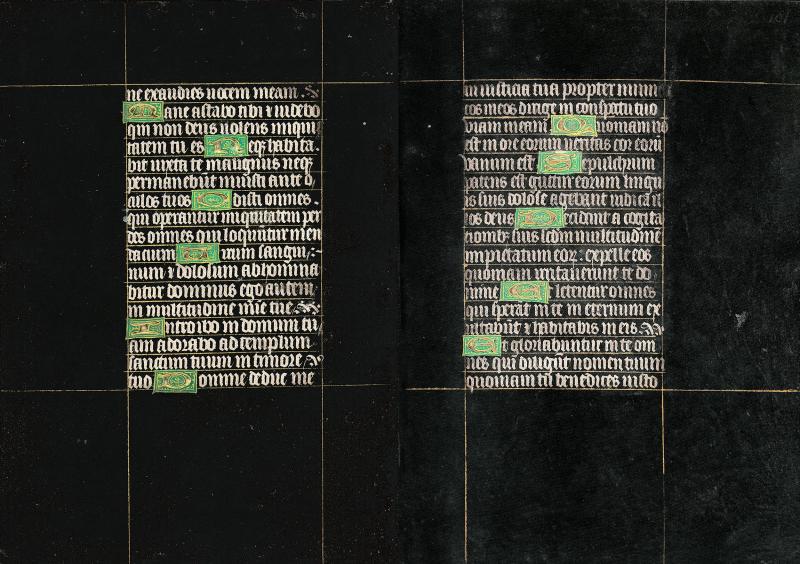 ne exaudies uocem meam
Mane astabo tibi et uidebo
qm non deus uolens iniqui
tatem tu es Neq habita
bit iuxta te malignus neq
permanebūt iniusti ante o
culos tuos Odisti omnes
qui operantur iniquitatem per
des omnes qui loquūtur men
dacium Virum sangui
num et dolosum abhomina
bitur dominus ego autem
in multitudine mīe tue
Introibo in domum tu
am adorabo ad templum
sanctum tuum in timore
tuo Domine deduc me
in iusticia tua propter inimi
cos meos dirige in conspctu tuo
viam meam Quoniam nō
est in ore eorum ueritas cor eorū
vanum est Sepulchrum
patens est guttur eorum lingu
is suis dolose agebant iudica il
los deus Decidant a cogita
tionib suis scdm multitudinē
impietatum eor expelle eos
quoniam irritauerunt te do
mine Et letentur omnes
qui sperāt in te in eternum ex
ultabūt et habitabis in eis
Et gloriabuntur in te om
nes qui diligūt nomen tuum
quoniam tu benedices iusto